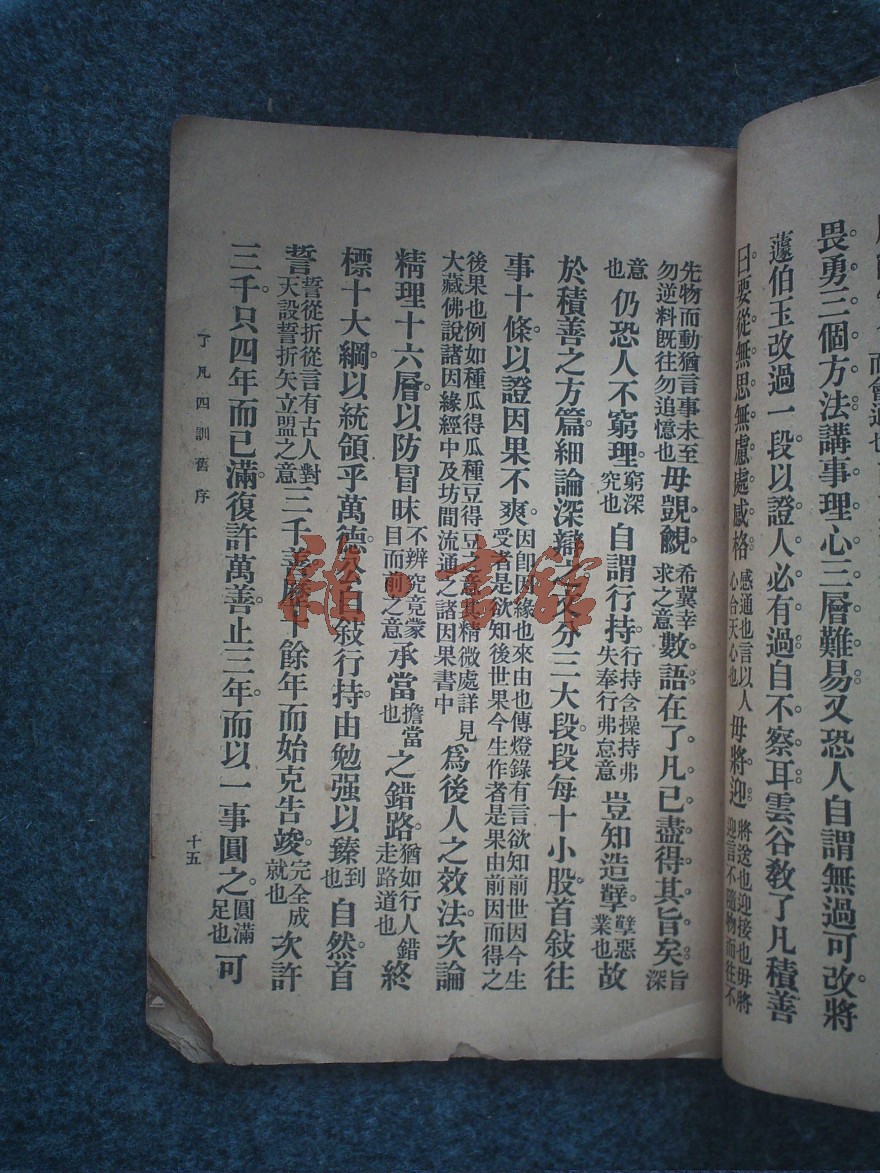 畏勇三個方法講事理心三層難易又恐人自謂無過可改將
蘧伯玉改過一段以證人必有過自不察耳雲谷教了凡積善
曰要從無思無慮處感格感通也言以人心合天心也毋將迎將送也迎接也毋將迎言不隨物而往不
先物而動猶言事未至勿逆料既往勿追憶也毋覬覦希冀幸求之意數語在了凡已盡得其旨矣旨深
意也仍恐人不窮理窮深究也自謂行持行持含操持弗失奉行弗怠意豈知造孽孽惡業也故
於積善之方篇細論深辯之又分三大段段每十小股首敍往
事十條以證因果不爽因即因緣也來由也傳燈錄有言欲知前世因今生受者是欲知後世果今生作者是果由前因而得之
後果也例如種瓜得瓜種豆得豆之意其精微處詳見大藏佛說諸因緣經中及坊間流通之諸因果書中為後人之效法次論
精理十六層以防冒昧不辨究竟蒙目而前之意承當擔當也之錯路猶如行人錯走路道也終
標十大綱以統領乎萬德公自敍行持由勉强以臻到也自然首
誓誓從折從言有古人對天設誓折矢立盟之意三千善歷十餘年而始克告竣完全成就也次許
三千只四年而已滿復許萬善止三年而以一事圓之圓滿足也可
了凡四訓舊序
十五
雒書館